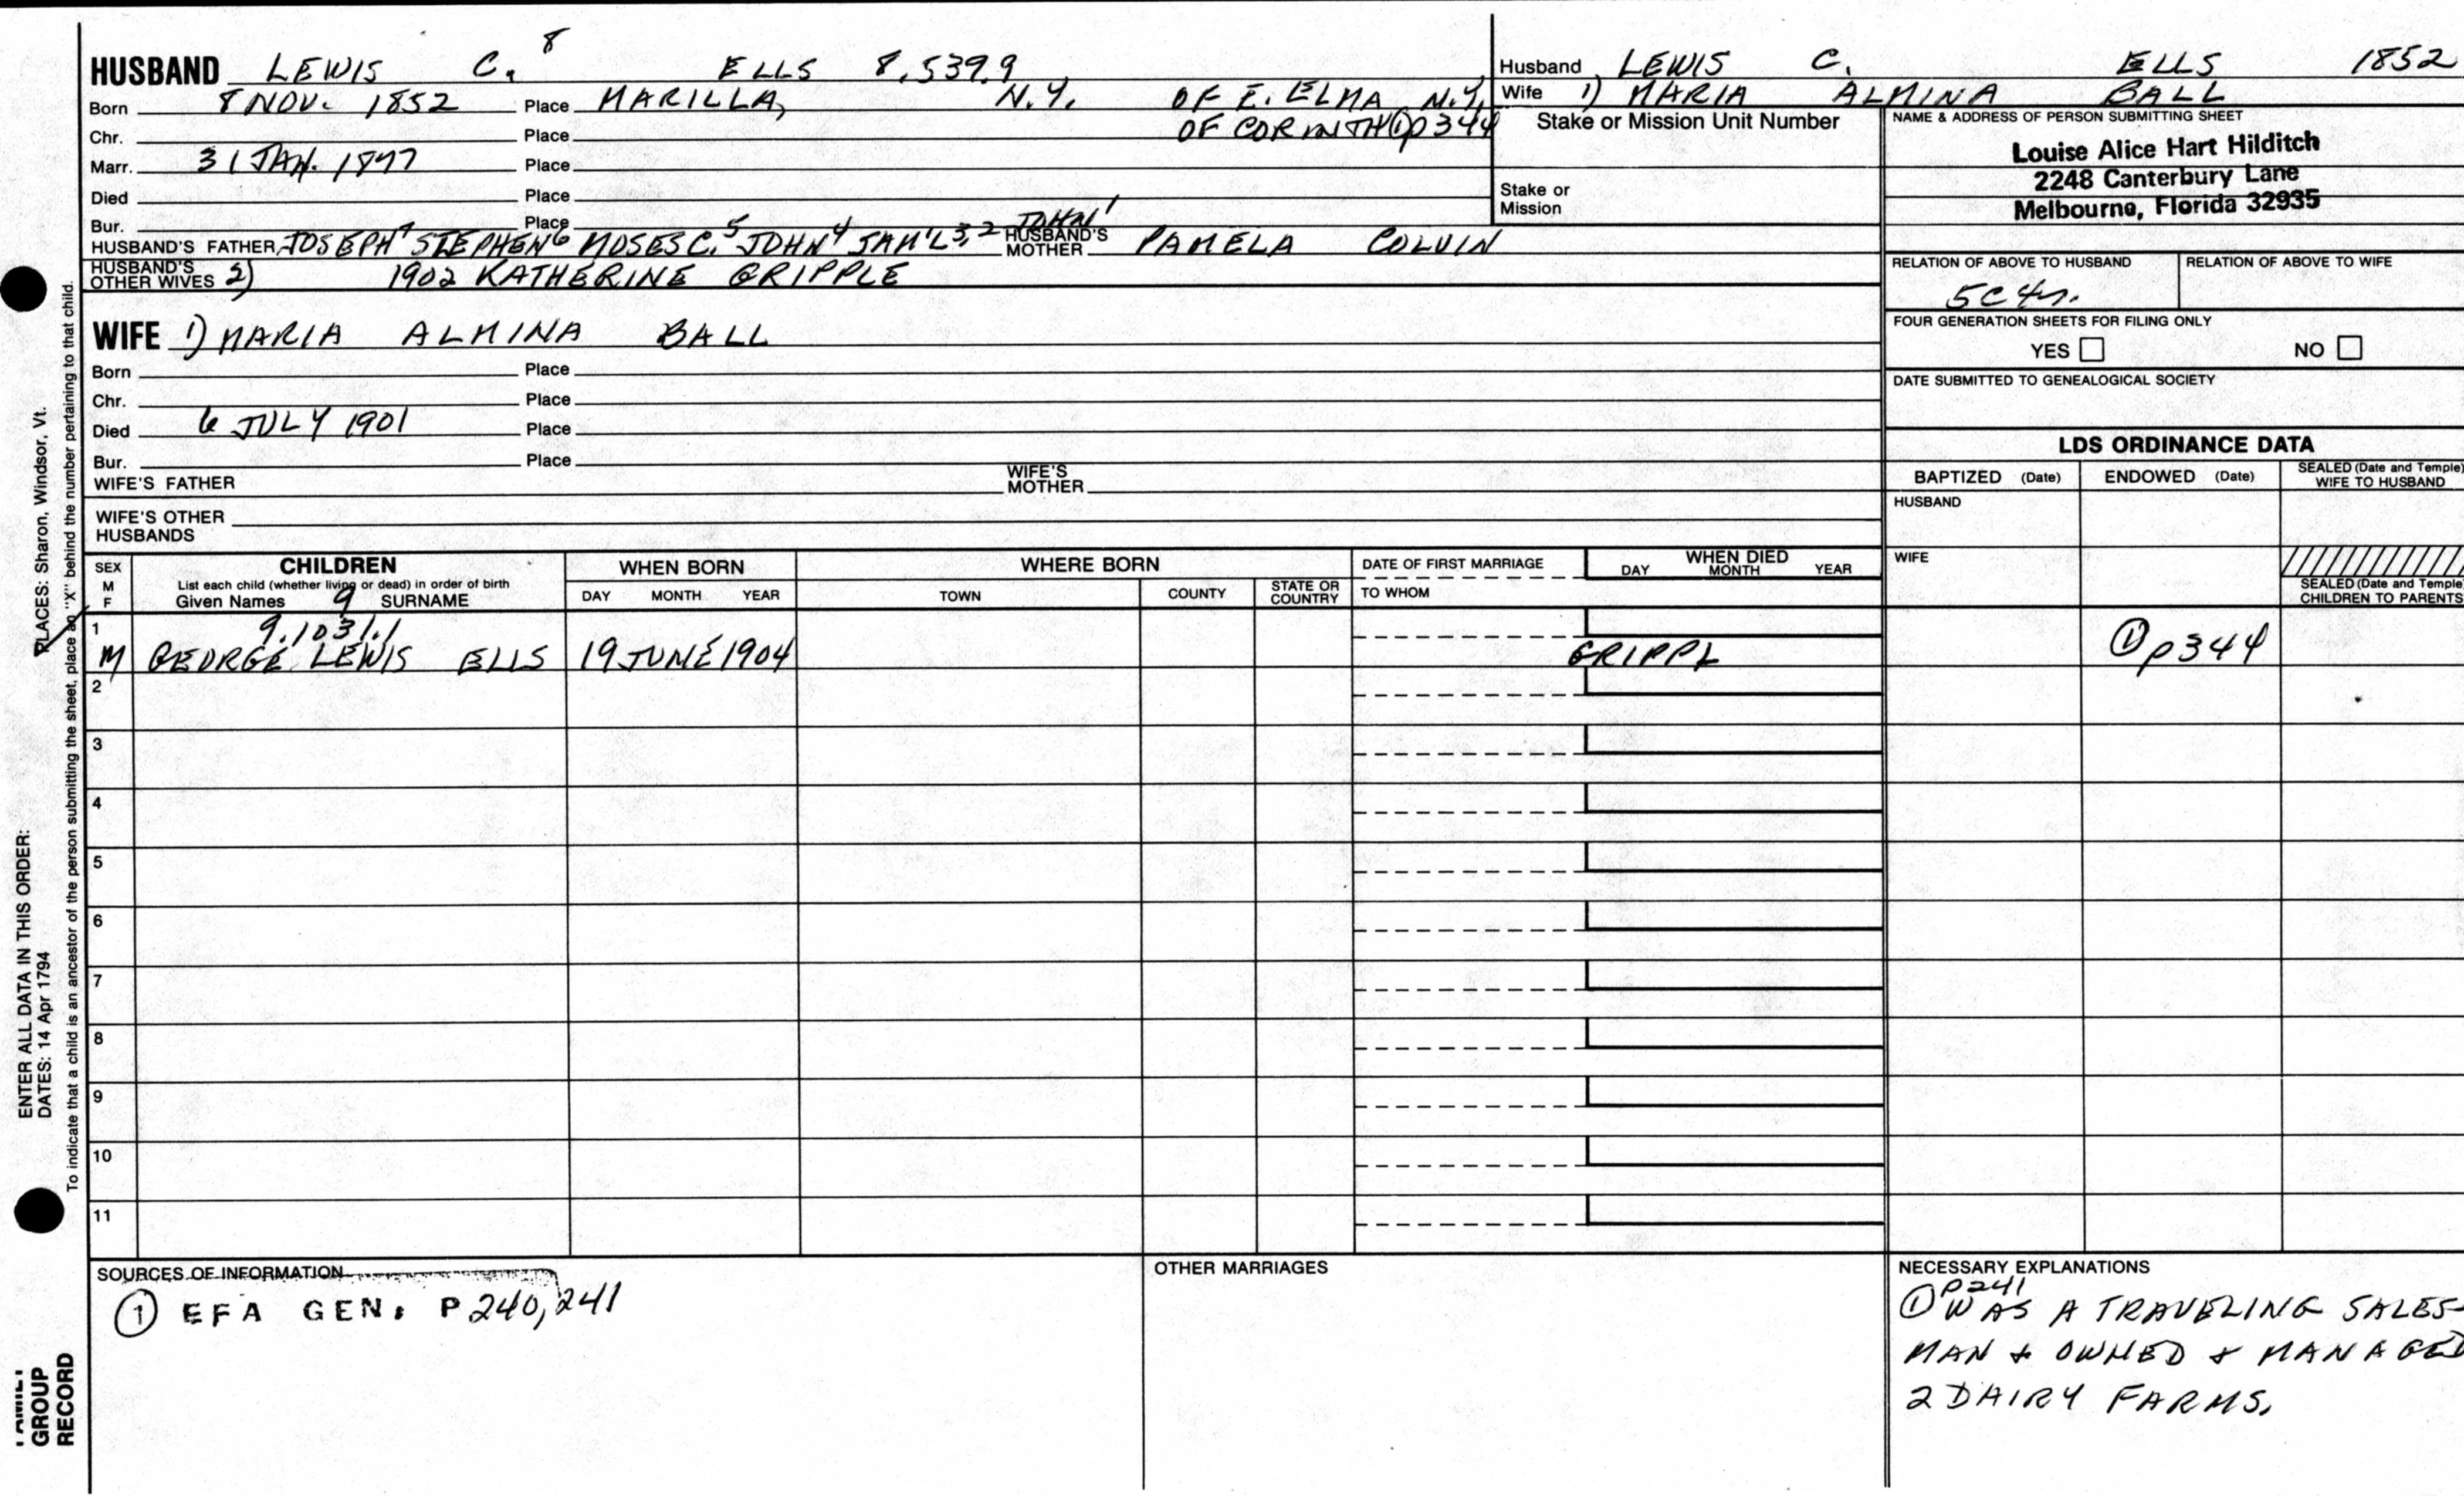 HUSBAND LEWIS C.⁸ ELLS 8,539.9
Born 8 NOV. 1852 Place MARILLA, N.Y. OF E. ELMA N.Y.
Chr. Place OF CORINTH ① p344
Marr. 31 JAN. 1877 Place
Died Place
Bur. Place
HUSBAND'S FATHER JOSEPH⁷ STEPHEN⁶ MOSES C.⁵ JOHN⁴ SAM'L³,² JOHN¹ HUSBAND'S MOTHER PAMELA COLVIN
HUSBAND'S OTHER WIVES 2) 1902 KATHERINE GRIPPLE
WIFE 1) MARIA ALMINA BALL
Born Place
Chr. Place
Died 6 JULY 1901 Place
Bur. Place
WIFE'S FATHER WIFE'S MOTHER
WIFE'S OTHER HUSBANDS
Husband LEWIS C. ELLS 1852
Wife 1) MARIA ALMINA BALL
Stake or Mission Unit Number
Stake or Mission
NAME & ADDRESS OF PERSON SUBMITTING SHEET
Louise Alice Hart Hilditch
2248 Canterbury Lane
Melbourne, Florida 32935
RELATION OF ABOVE TO HUSBAND RELATION OF ABOVE TO WIFE
5C4r.
FOUR GENERATION SHEETS FOR FILING ONLY
YES NO
DATE SUBMITTED TO GENEALOGICAL SOCIETY
LDS ORDINANCE DATA
BAPTIZED (Date) ENDOWED (Date) SEALED (Date and Temple) WIFE TO HUSBAND
HUSBAND
WIFE
SEALED (Date and Temple) CHILDREN TO PARENTS
SEX M F CHILDREN WHEN BORN WHERE BORN DATE OF FIRST MARRIAGE WHEN DIED
List each child (whether living or dead) in order of birth
Given Names 9 SURNAME DAY MONTH YEAR TOWN COUNTY STATE OR COUNTRY TO WHOM DAY MONTH YEAR
1 9.1031.1
M GEORGE LEWIS ELLS 19 JUNE 1904 GRIPPL ① p344
2
3
4
5
6
7
8
9
10
11
SOURCES OF INFORMATION
① EFA GEN. P 240, 241
OTHER MARRIAGES
NECESSARY EXPLANATIONS
① P241
WAS A TRAVELING SALES-
MAN + OWNED + MANAGED
2 DAIRY FARMS.
ENTER ALL DATA IN THIS ORDER:
DATES: 14 Apr 1794 PLACES: Sharon, Windsor, Vt.
To indicate that a child is an ancestor of the person submitting the sheet, place an "X" behind the number pertaining to that child.
FAMILY
GROUP
RECORD